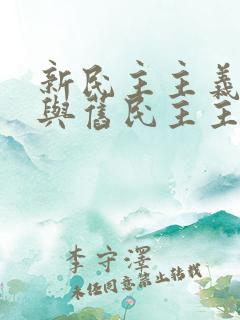 新民主主義
與舊民主主
李守澤
未经同意禁止转载